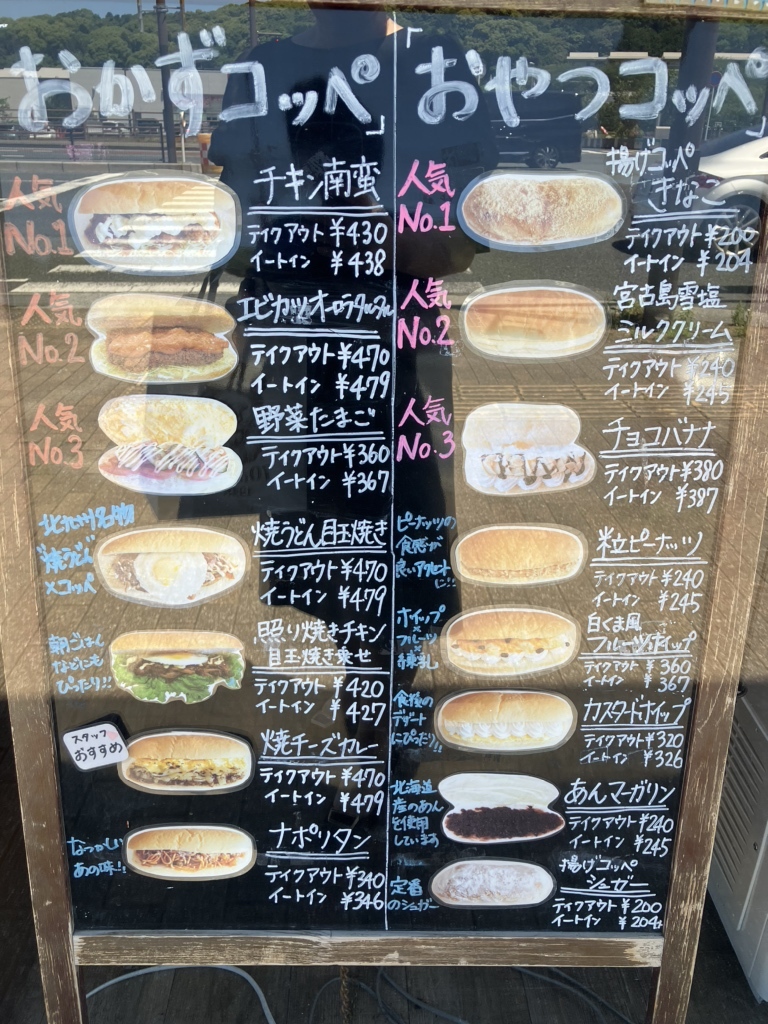 「おかずコッペ」
人気
No.1
チキン南蛮
テイクアウト ¥430
イートイン ¥438
人気
No.2
エビカツオーロラタルタル
テイクアウト ¥470
イートイン ¥479
人気
No.3
野菜たまご
テイクアウト ¥360
イートイン ¥367
北九州名物
焼うどん
×コッペ
焼うどん目玉焼き
テイクアウト ¥470
イートイン ¥479
朝ごはん
などにも
ぴったり!!
照り焼きチキン
目玉焼き乗せ
テイクアウト ¥420
イートイン ¥427
スタッフ
おすすめ
焼チーズカレー
テイクアウト ¥470
イートイン ¥479
なつかしい
あの味!!
ナポリタン
テイクアウト ¥340
イートイン ¥346
「おやつコッペ」
人気
No.1
揚げコッペ
きなこ
テイクアウト ¥200
イートイン ¥204
人気
No.2
宮古島雪塩
ミルククリーム
テイクアウト ¥240
イートイン ¥245
人気
No.3
チョコバナナ
テイクアウト ¥380
イートイン ¥387
ピーナッツの
食感が
良いアクセント
に!!
粒ピーナッツ
テイクアウト ¥240
イートイン ¥245
ホイップ
×
フルーツ
×
練乳
白くま風
フルーツホイップ
テイクアウト ¥360
イートイン ¥367
食後の
デザート
にぴったり!!
カスタードホイップ
テイクアウト ¥320
イートイン ¥326
北海道
産のあん
を使用
しています
あんマーガリン
テイクアウト ¥240
イートイン ¥245
定番
のシュガー
揚げコッペ
シュガー
テイクアウト ¥200
イートイン ¥204